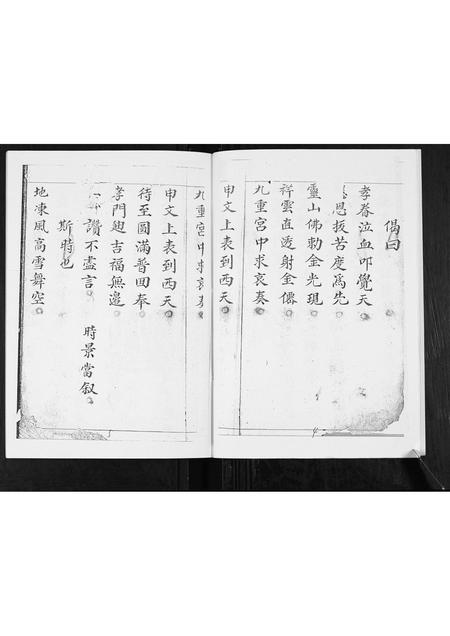 偈曰
孝眷泣血叩覺天
恩拔苦度為先
靈山佛勅金光現
祥雲直透射金儒
九重宮中求哀奏
申文上表到西天
九重宮中求哀奏
申文上表到西天
待至圓滿普回奉
孝門迎吉福無邊
讚不盡言 時景當叙
斯時也
地凍風高雪舞空